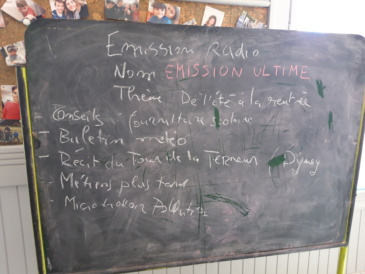 Emission Radio
Nom EMISSION ULTIME
Thème De l'été à la rentrée
- Conseils : fourniture scolaire
- Bulletin météo
- Recit du Tour de la
- Métiers plus tard
- Micro trottoir